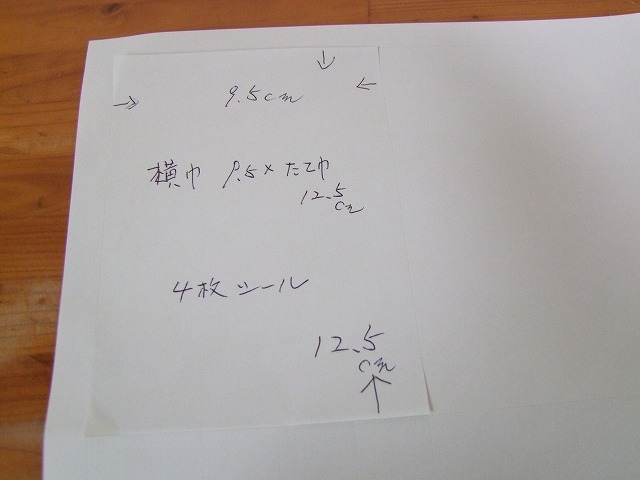 ↓
→ 9.5cm ←
横巾 9.5×たて巾
12.5
cm
4枚シール
12.5
cm
↑